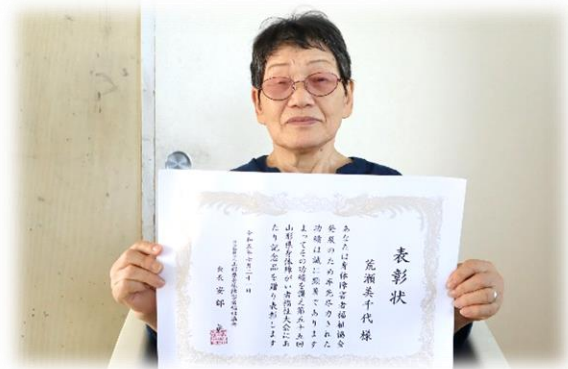 表彰状
荒瀬美千代 様
あなたは身体障害者福祉協会
発展のため率先尽力された
功績は誠に顕著であります
よってその功績を讃え第五十五回
山形県身体障がい者福祉大会にあ
たり記念品を贈り表彰します
令和五年七月
会長 安部